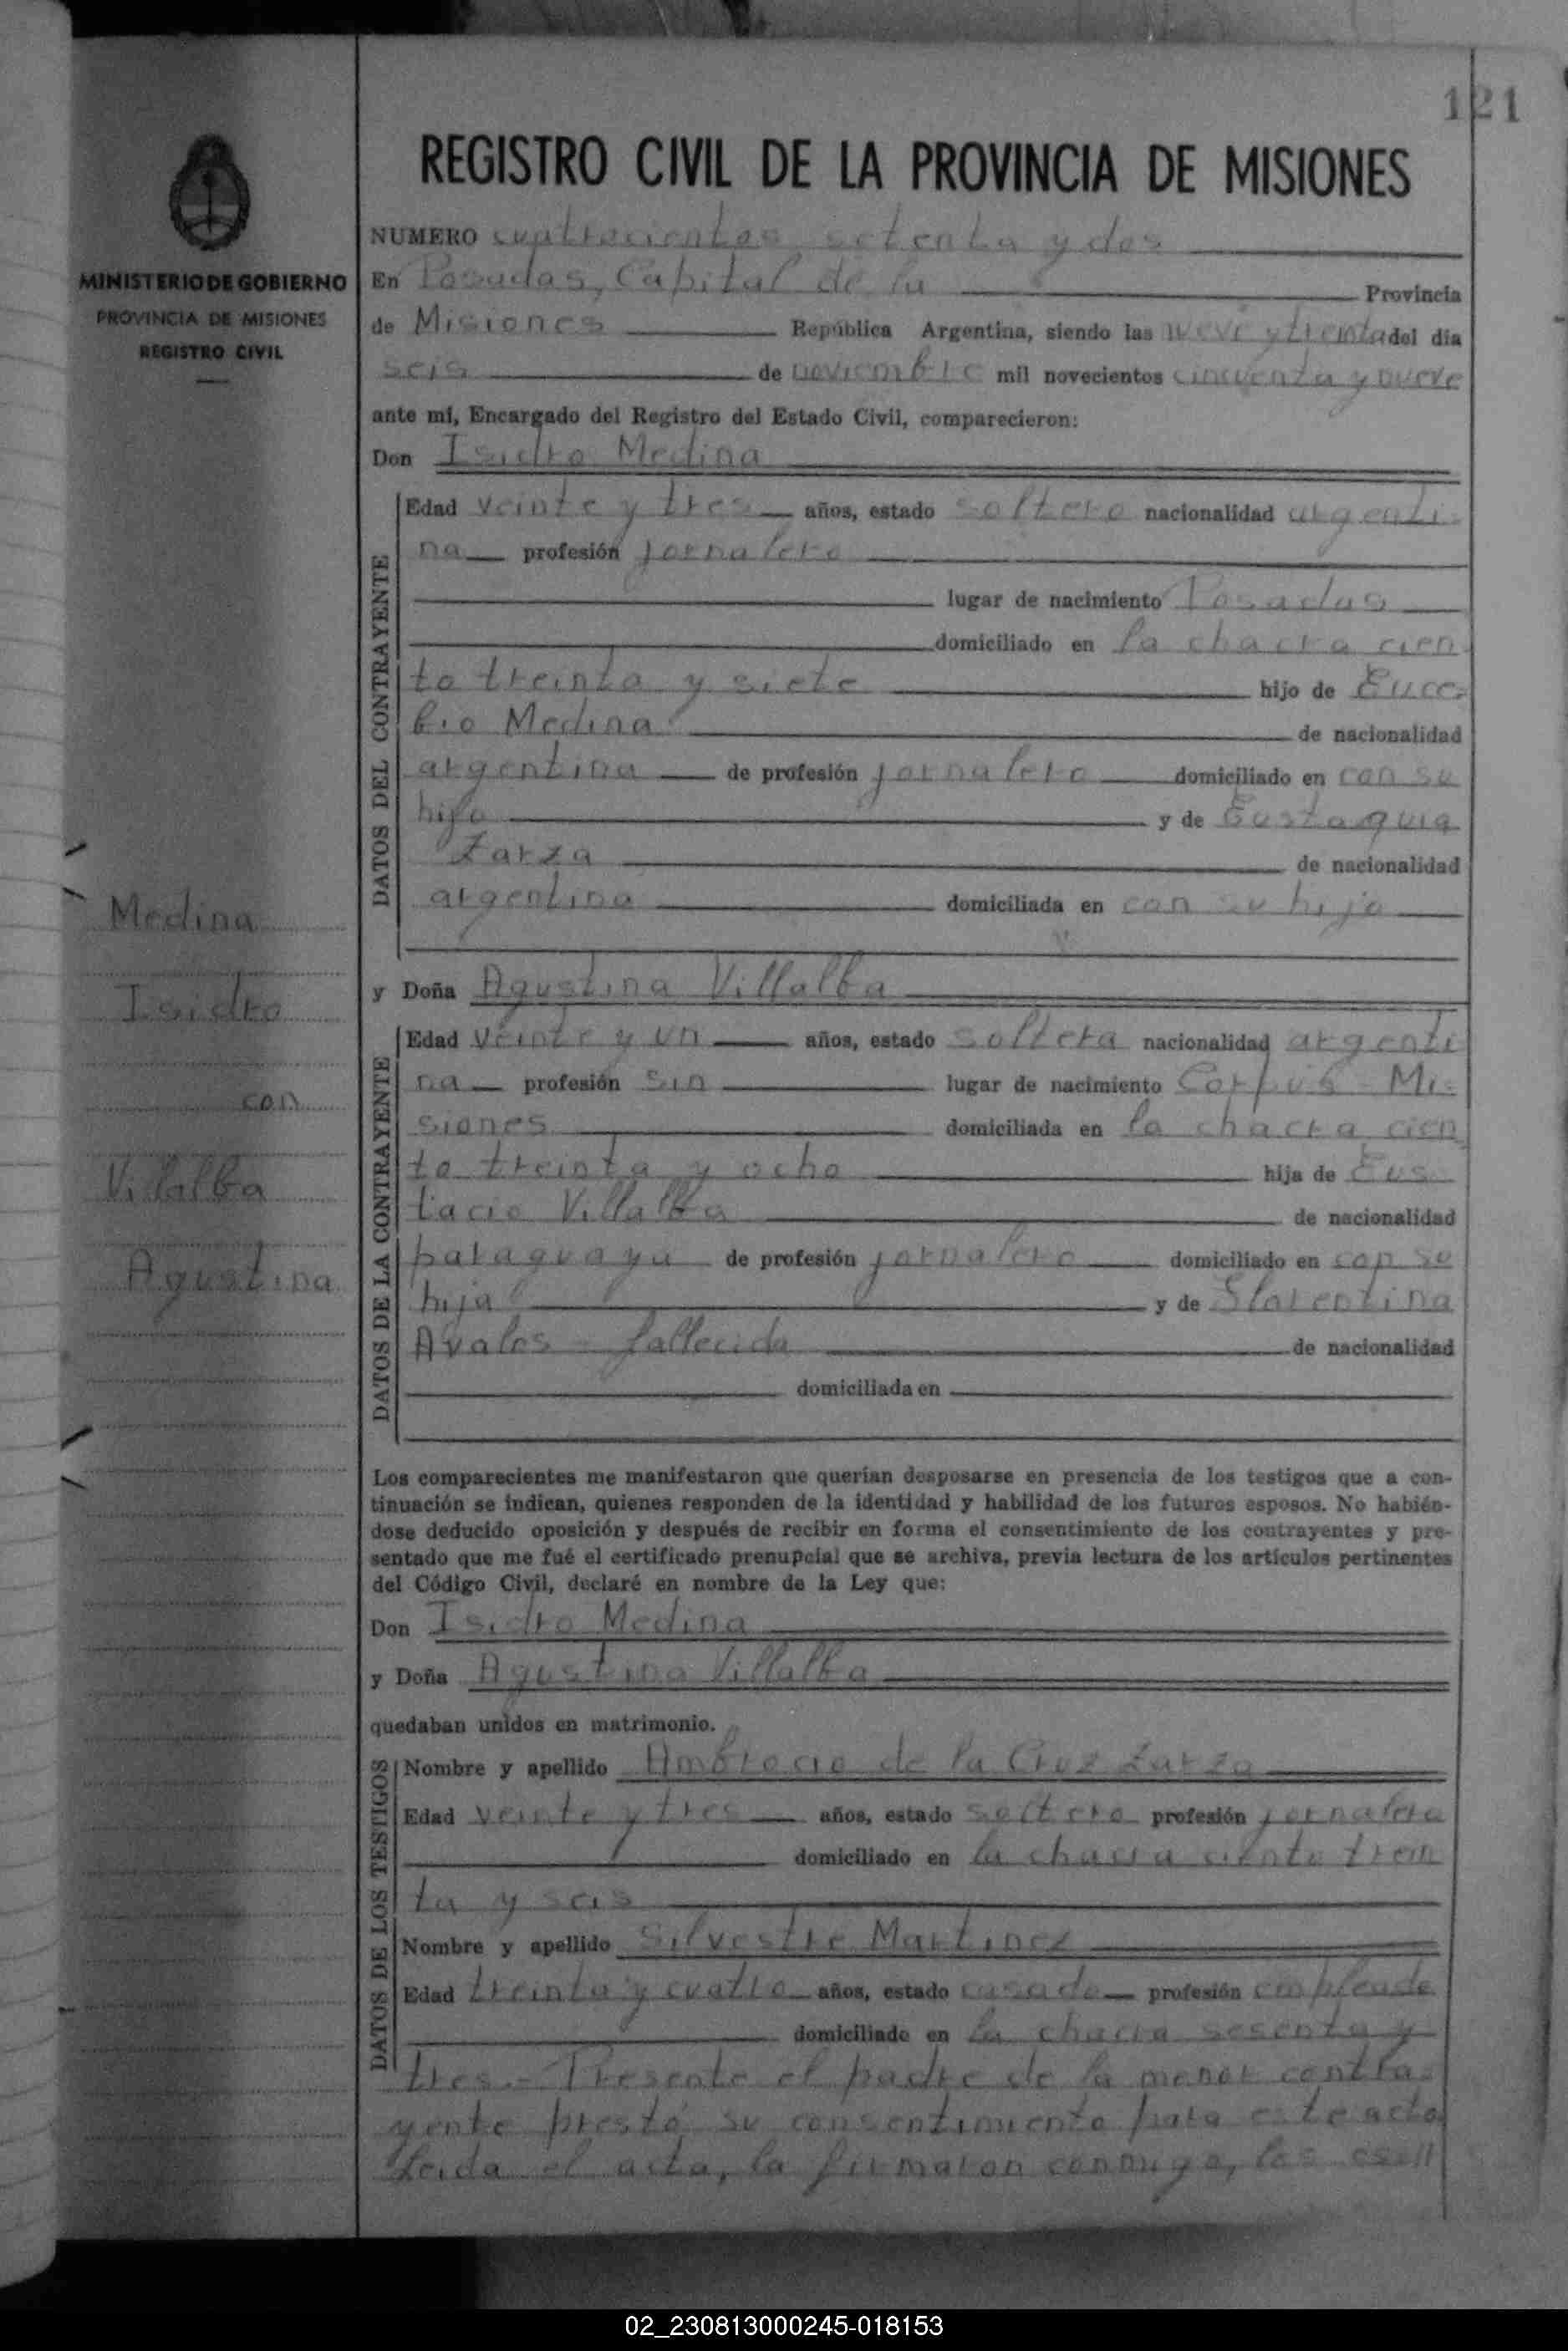 121
REGISTRO CIVIL DE LA PROVINCIA DE MISIONES
MINISTERIO DE GOBIERNO
PROVINCIA DE MISIONES
REGISTRO CIVIL
NUMERO cuatrocientos setenta y dos
En Posadas, Capital de la Provincia
de Misiones República Argentina, siendo las nueve y treinta del día
seis de noviembre mil novecientos cincuenta y nueve
ante mí, Encargado del Registro del Estado Civil, comparecieron:
Don Isidro Medina
DATOS DEL CONTRAYENTE
Edad veinte y tres años, estado soltero nacionalidad argenti-
na profesión jornalero
lugar de nacimiento Posadas
domiciliado en la chacra cien
to treinta y siete hijo de Euce-
bio Medina de nacionalidad
argentina de profesión jornalero domiciliado en con su
hijo y de Eustaquia
Zarza de nacionalidad
argentina domiciliada en con su hijo
Medina
Isidro
con
Villalba
Agustina
y Doña Agustina Villalba
DATOS DE LA CONTRAYENTE
Edad veinte y un años, estado soltera nacionalidad argenti
na profesión sin lugar de nacimiento Corpus - Mi-
siones domiciliada en la chacra cien
to treinta y ocho hija de Eus
tacio Villalba de nacionalidad
paraguaya de profesión jornalero domiciliado en con su
hija y de Florentina
Avalos - fallecida de nacionalidad
domiciliada en
Los comparecientes me manifestaron que querían desposarse en presencia de los testigos que a con-
tinuación se indican, quienes responden de la identidad y habilidad de los futuros esposos. No habién-
dose deducido oposición y después de recibir en forma el consentimiento de los contrayentes y pre-
sentado que me fué el certificado prenupcial que se archiva, previa lectura de los artículos pertinentes
del Código Civil, declaré en nombre de la Ley que:
Don Isidro Medina
y Doña Agustina Villalba
quedaban unidos en matrimonio.
DATOS DE LOS TESTIGOS
Nombre y apellido Ambrocio de la Cruz Zarza
Edad veinte y tres años, estado soltero profesión jornalero
domiciliado en la chacra ciento trein
ta y seis
Nombre y apellido Silvestre Martinez
Edad treinta y cuatro años, estado casado profesión empleado
domiciliado en la chacra sesenta y
tres.- Presente el padre de la menor contra-
yente prestó su consentimiento para este acto
Leida el acta, la firmaron conmigo, los
02_230813000245-018153